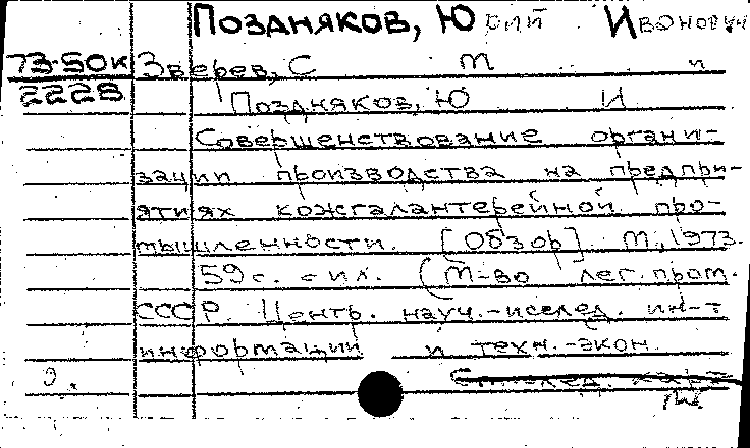 Поздняков, Юрий Иванович
73-50к Зверев, С М и
2228 Поздняков, Ю И
Совершенствование органи-
зации производства на предпри-
ятиях кожгалантерейной про-
мышленности. [Обзор]. М., 1973.
59 с. с ил. (М-во лег. пром.
СССР. Центр. науч.-исслед. ин-т
информации и техн.-экон.
След. карт